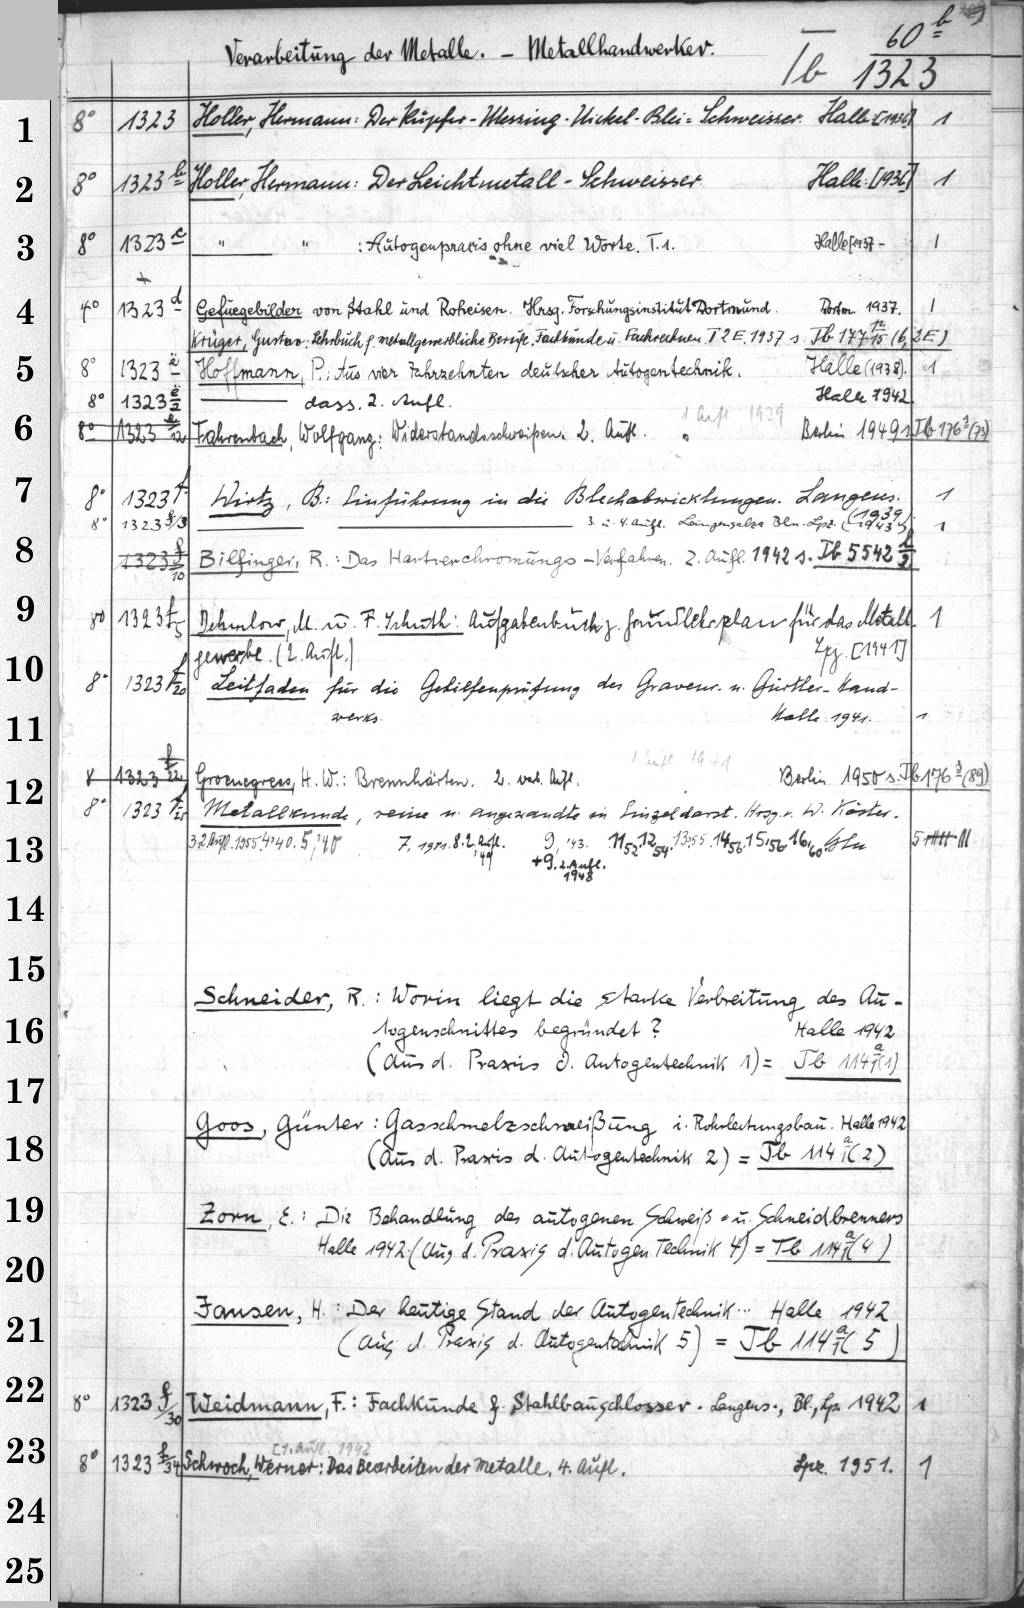 60 b
Verarbeitung der Metalle. – Metallhandwerker. Ib 1323
1 8° 1323 Holler, Hermann: Der Kupfer-Messing-Nickel-Blei-Schweisser. Halle: [1936] 1
2 8° 1323 b Holler, Hermann: Der Leichtmetall-Schweisser Halle: [1936] 1
3 8° 1323 c " " : Autogenpraxis ohne viel Worte. T. 1. Halle [1937- 1
4 4° 1323 d Gefuegebilder von Stahl und Roheisen. Hrsg. Forschungsinstitut Dortmund. Dortm. 1937. 1
Krüger, Gustav: Lehrbuch f. metallgewerbliche Berufe. Fachkunde u. Fachrechnen T 2 E. 1937 s. Ib 177 (6, 2E)
5 8° 1323 Hoffmann, P.: Aus vier Jahrzehnten deutscher Autogentechnik. Halle (1938). 1
8° 1323 dass. 2. Aufl. Halle 1942
1 Aufl 1939
6 8° 1323 Fahrenbach, Wolfgang: Widerstandsschweißen. 2. Aufl. Berlin 1949 s. Ib 176 (73)
7 8° 1323 f Wirtz, B.: Einführung in die Blechabwicklungen. Langens. (1939) 1
8° 1323 f/3 3. u. 4. Aufl. Langensalza Bln. Lpz. (1943) 1
8 1323 f/10 Bilfinger, R.: Das Hartverchromungs-Verfahren. 2. Aufl. 1942 s. Ib 5542
9 8° 1323 f/5 Dehmlow, M. u. F. Schuth: Aufgabenbuch z. Grundlehrplan für das Metall- 1
gewerbe. (2. Aufl.) Lpz. [1941]
10 8° 1323 f/20 Leitfaden für die Gehilfenprüfung des Graveur- u. Gürtler-Hand-
11 werks. Halle 1941. 1
1 Aufl 1941
12 8 1323 f/22 Groenegress, H. W.: Brennhärten. 2. verb. Aufl. Berlin 1950 s. Ib 176 (89)
8° 1323 f/25 Metallkunde, reine u. angewandte in Einzeldarst. Hrsg. v. W. Köster.
13 3. 2. Aufl. 1955. 4, '40. 5, '40 7, 1941. 8. 2. Aufl. '49 9, '43. 11 52, 12 54, 13, 55. 14, 56, 15, 56 16, 60. Bln 5
+ 9. 2. Aufl. 1948
14
15
Schneider, R.: Worin liegt die starke Verbreitung des Au-
16 togenschnittes begründet? Halle 1942
(Aus d. Praxis d. Autogentechnik 1) = Ib 114 a/1 (1)
17
Goos, Günter: Gasschmelzschweißung i. Rohrleitungsbau. Halle 1942
18 (Aus d. Praxis d. Autogentechnik 2) = Ib 114 a/1 (2)
19 Zorn, E.: Die Behandlung des autogenen Schweiß- u. Schneidbrenners
Halle 1942. (Aus d. Praxis d. Autogentechnik 4) = Ib 114 a/1 (4)
20
Jansen, H.: Der heutige Stand der Autogentechnik... Halle 1942
21 (Aus d. Praxis d. Autogentechnik 5) = Ib 114 a/1 (5)
22 8° 1323 f/30 Weidmann, F.: Fachkunde f. Stahlbauschlosser. Langens., Bl., Lpz. 1942 1
[1. Aufl. 1942
23 8° 1323 f/34 Schwoch, Werner: Das Bearbeiten der Metalle. 4. Aufl. Lpz. 1951. 1
24
25